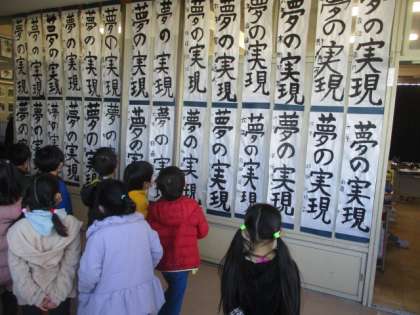 夢の実現
夢の実現
夢の実現
夢の実現
夢の実現
夢の実現
夢の実現
夢の実現
夢の実現
夢の実現
夢の実現
夢の実現
夢の実現
夢の実現
夢の
夢の
夢の
夢の実
夢の
夢の
夢の実
夢の実
夢の実現
夢の実現
夢の実現
夢の実現
夢の実現
夢の実現